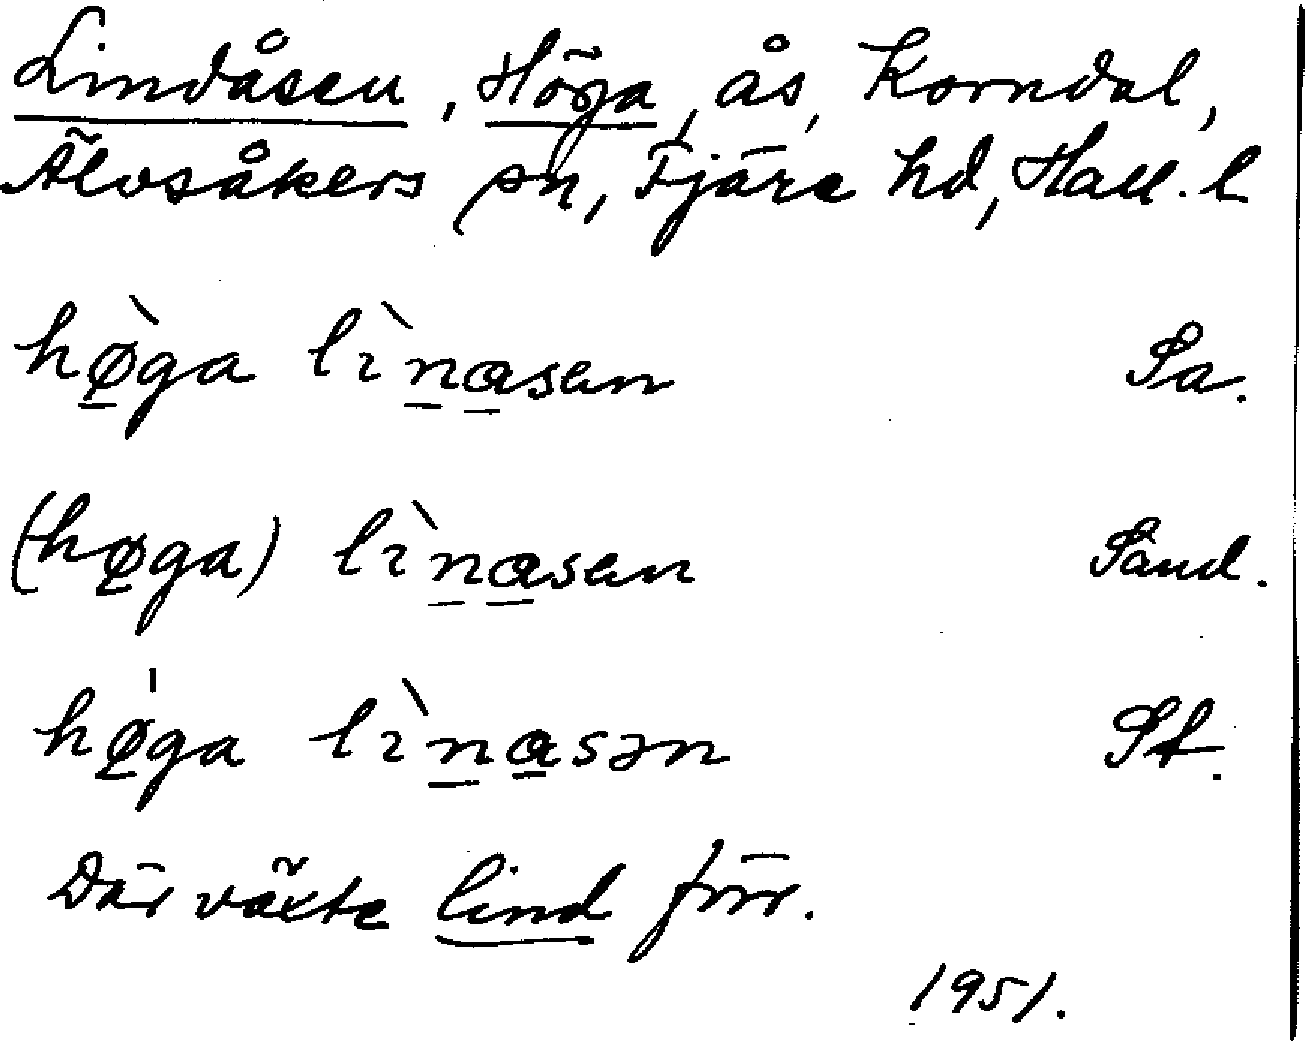 Lindåsen, Höga, ås, Korndal,
Älvsåkers sn, Fjäre hd, Hall. l
hø̀ga lìnasen Sa.
(høga) lìnasen Sand.
hø'ga lìnasən St.
Där växte lind förr.
1951.